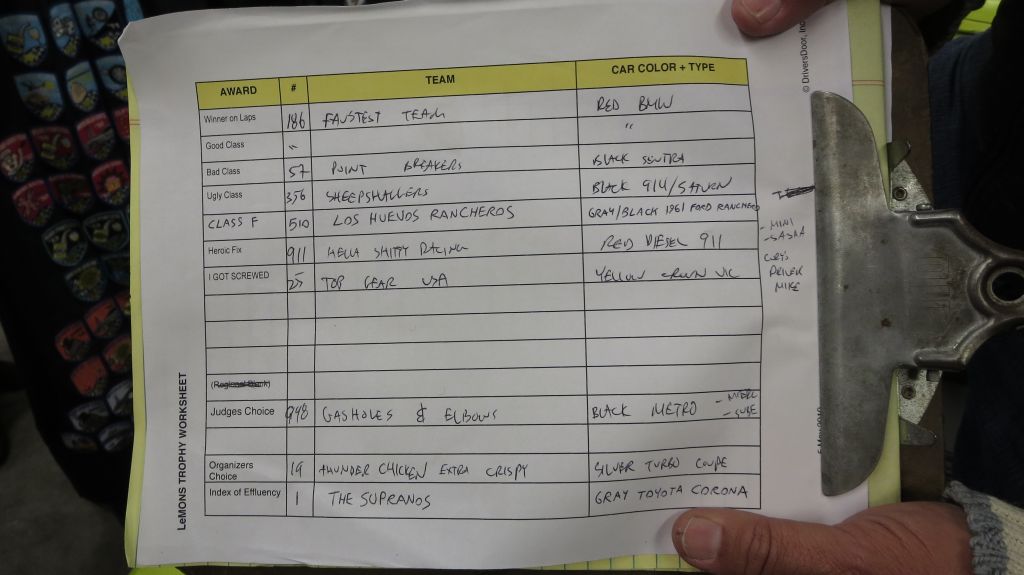 AWARD # TEAM CAR COLOR + TYPE
Winner on Laps 186 FASTEST TEAM RED BMW
Good Class " "
Bad Class 57 POINT BREAKERS BLACK SENTRA
Ugly Class 356 SHEEPSHAGGERS BLACK 914/SATURN
CLASS F 510 LOS HUEVOS RANCHEROS GRAY/BLACK 1961 FORD RANCHERO
Heroic Fix 911 HELLA SHITTY RACING RED DIESEL 911
I GOT SCREWED 25 TOP GEAR USA YELLOW CROWN VIC
(Regional Blank)
Judges Choice 998 GASHOLES & ELBOWS BLACK METRO
Organizers
Choice 19 THUNDER CHICKEN EXTRA CRISPY SILVER TURBO COUPE
Index of Effluency 1 THE SUPRANOS GRAY TOYOTA CORONA
- MINI
- SASHA
DRIVER
MIKE
LeMONS TROPHY WORKSHEET
© DriversDoor, Inc